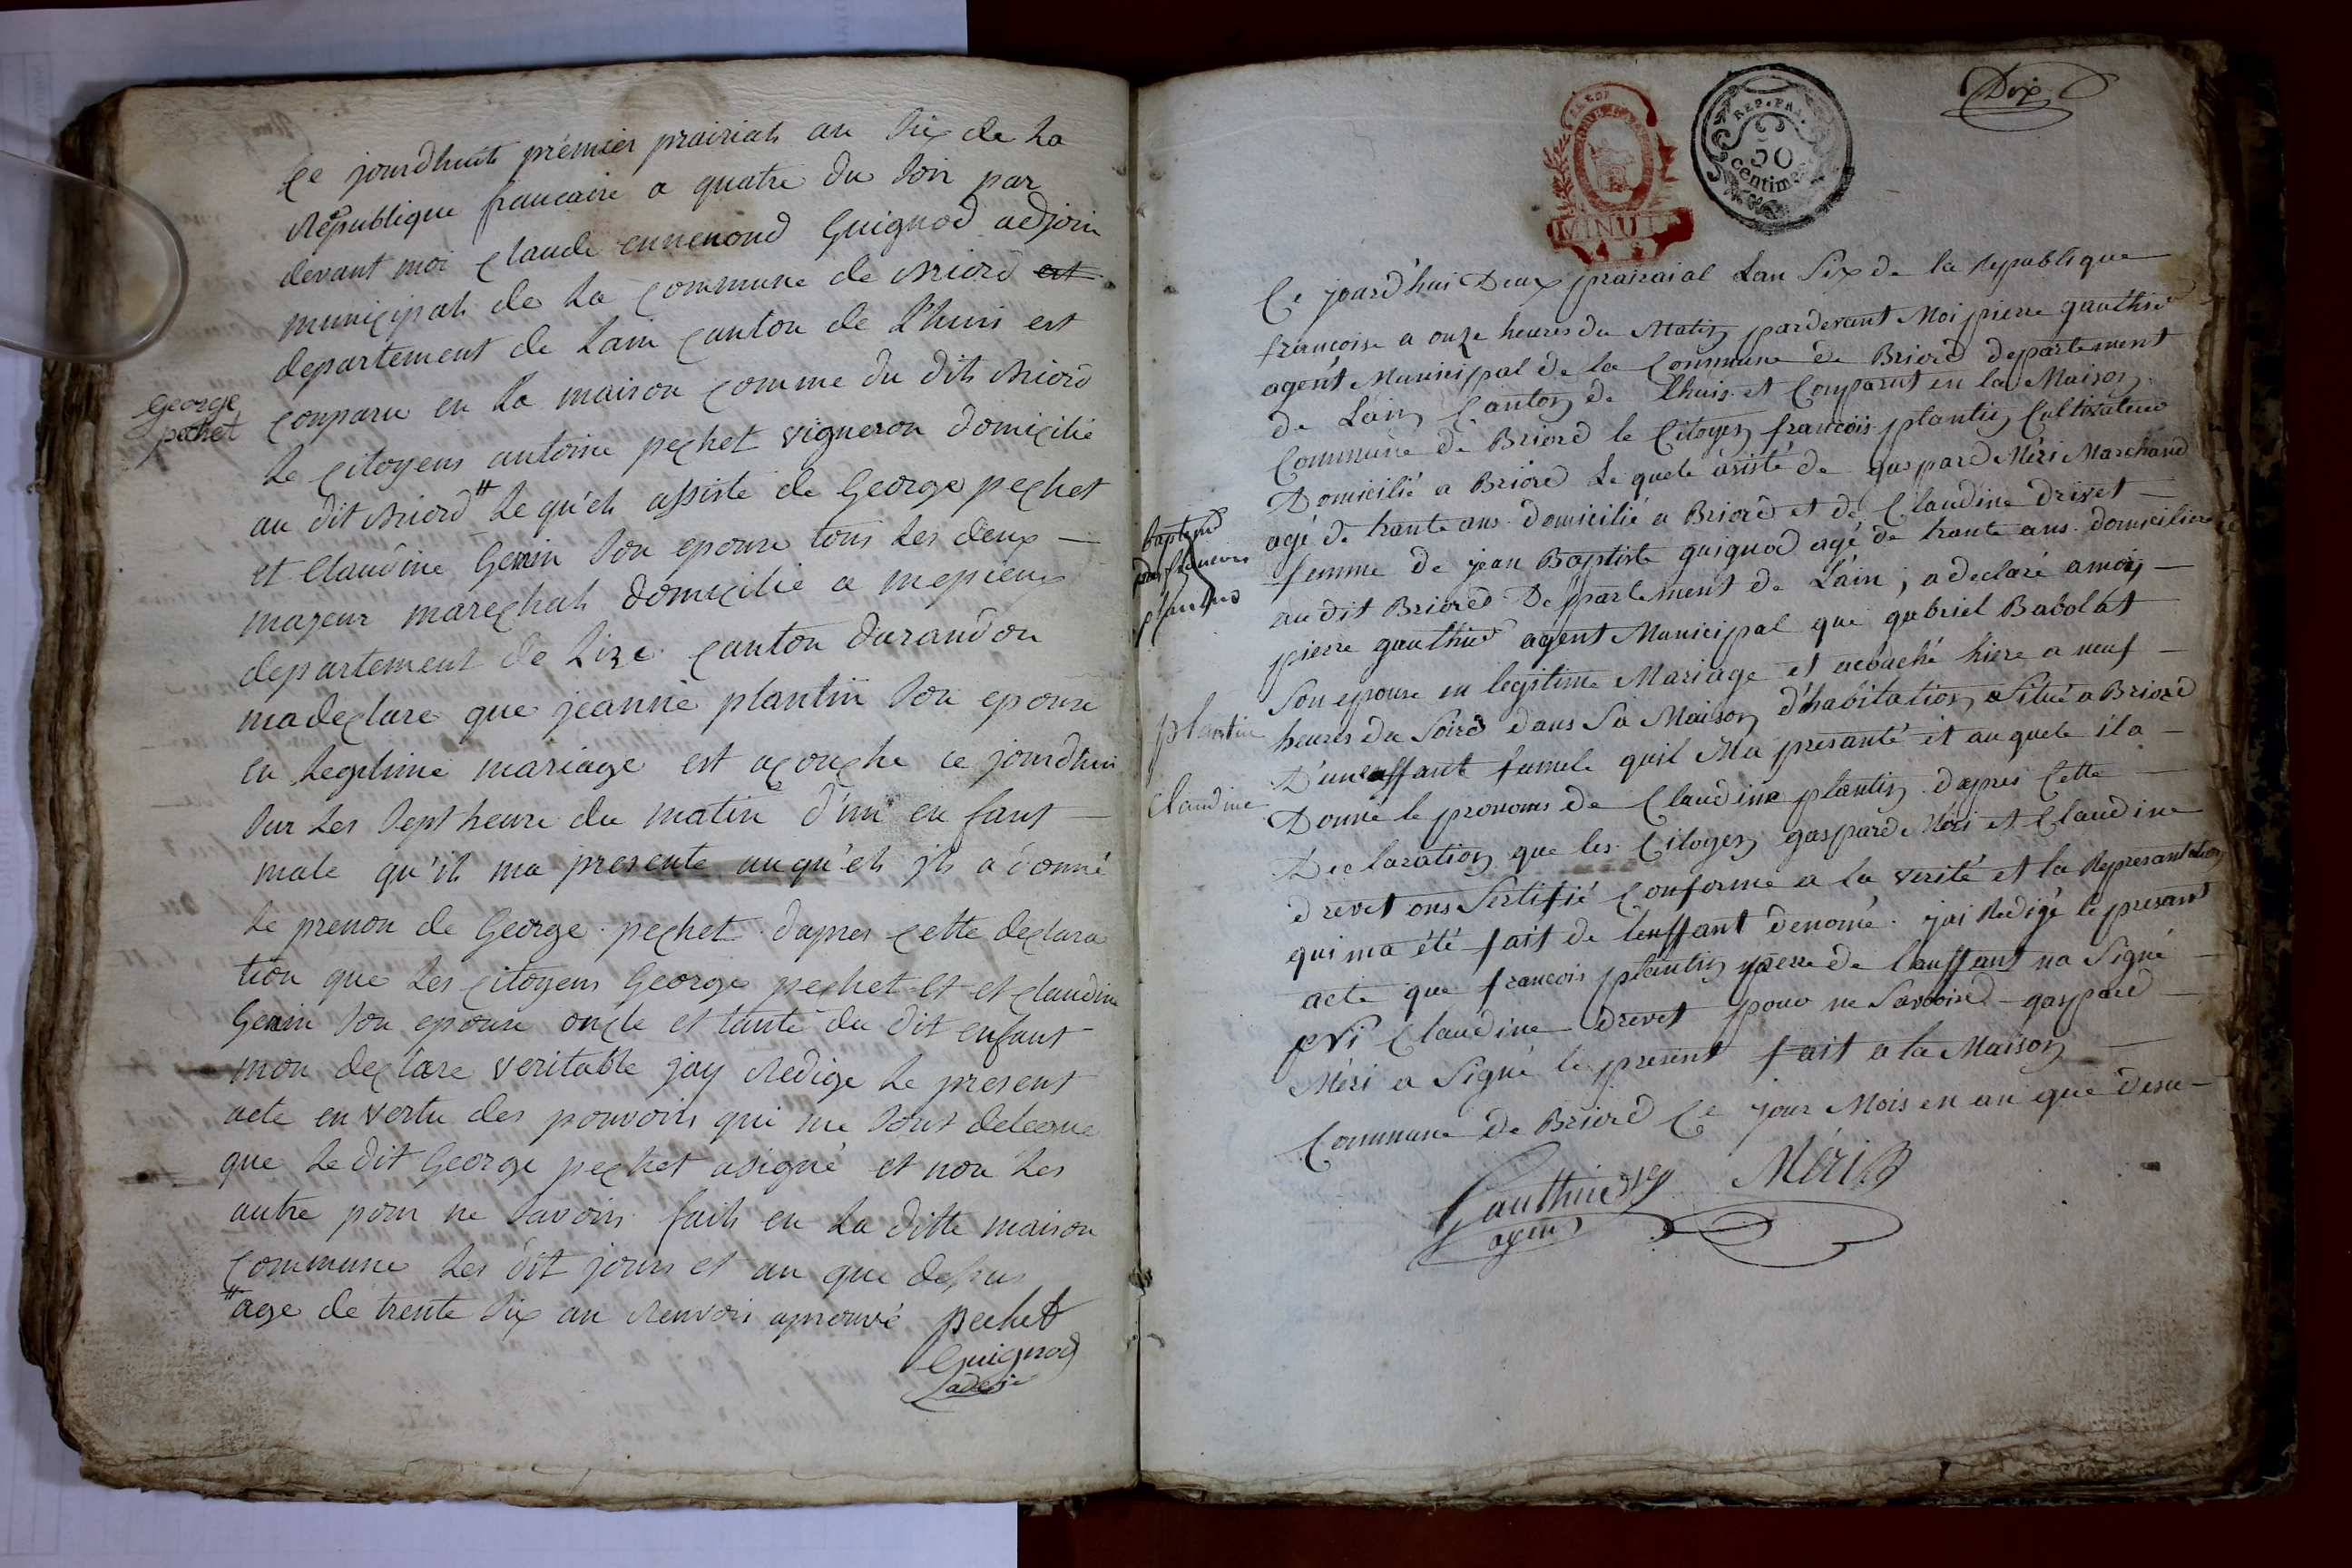 Ce jourdhuit prémier prairiah an Six de La
Republique francaise a quatre du Soir par
devant moi Claude ennemond Guignod adjoin
municipah de La Commune de Briord est
departement de Lain Canton de L'huis est
George
pechet
Comparu en La maison Comme du dit Briord
Le Citoyens antoine pechet vigneron domicilié
au dit Briord # Le qu'eh assisté de George pechet
et Claudine Genin Son epouse tous Les deux
majeur marechah domicilié a mepieux
departement de Lize Canton durandon
madeclare que jeanne plantin Son epouse
en Legitime mariage est acouche ce jourdhui
Sur Les Sept heure du matin d'un en fant
male qu'ih ma presente auqu'eh jh a donné
Le prenon de George pechet dapres Cette declara
tion que Les Citoyens George pechet et et Claudine
Genin Son epouse oncle et tante du dit enfant
mon declare veritable jay Redige Le present
acte en vertu des pouvoirs qui me Sont
que Le dit George pechet asigné et non Les
autre pour ne Savoir faih en La ditte maison
Commune Les dit jours et an que dessus
# age de trente Six an Renvois aprouvé pechet
Guignod
adjoin
Dix
REP. FRA.
50
Centimes
MINUTE
Ce jourd'hui Deux prairaial Lan Six de la Republique
francoise a onze heures du Matin pardevant Moi pierre gauthier
agent Municipal de la Commune de Briord departement
de Lain Canton de Lhuis et Comparut en la Maison
Commune de Briord le Citoyen francois plantin Cultivateur
Domicilié a Briord Le quele asisté de gaspard Méri Marchand
agé de trante ans domicilié a Briord et de Claudine drivet
femme de jean Baptiste guignod agé de trante ans domiciliere
au dit Briord Departement de Lain ; a declaré a moi
pierre gauthier agent Municipal que gabriel Babolat
Son epouse en legitime Mariage et acouché hiere a neuf
plantin
heures du Soire dans Sa Maison d'habitation Situé a Briord
D'un enffant fumele quil Ma presanté et au quele il a
Claudine
Donné le pronoms de Claudine plantin dapres Cette
Declaration que les Citoyen gaspard Méri et Claudine
drevet ons Sertifié Conforme a la verité et la Represantation
qui ma été fait de lenffant denomé jai Redigé le presant
acte que francois plantin pere de lanffant na Signé
Claudine drevet pour ne Savoire gaspard
Méri a Signé le present fait a la Maison
Commune de Briord Ce jour Mois en an que desu
Gauthier Méri
agent